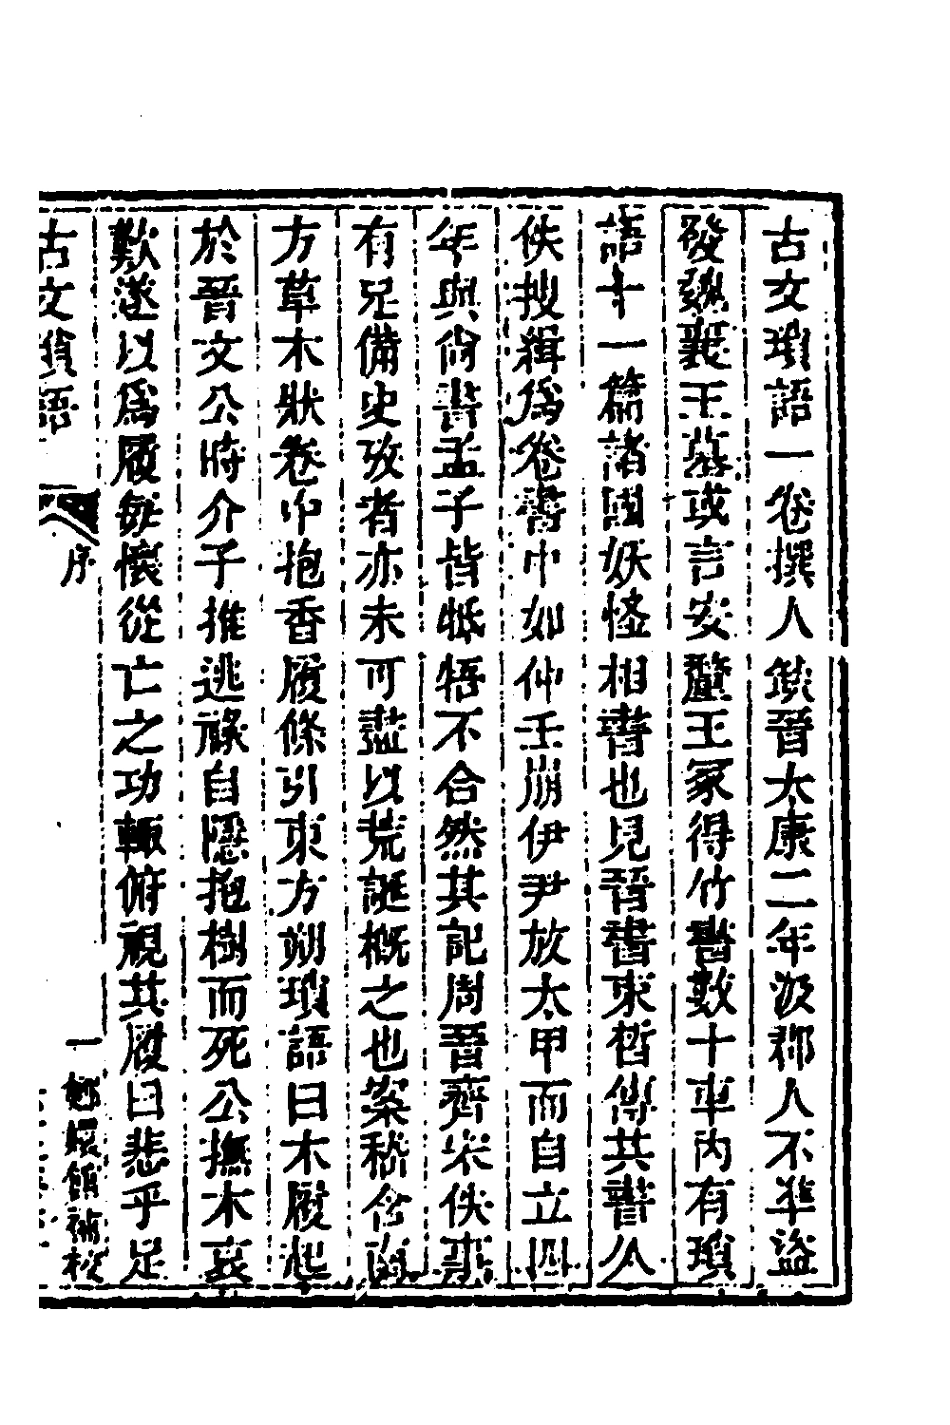 古文瑣語一卷撰人缺晉太康二年汲郡人不準盜
發魏襄王墓或言安釐王冢得竹書數十車內有瑣
語十一篇諸國妖怪相書也見晉書束晳傳其書久
佚搜輯爲卷書中如仲壬崩伊尹放太甲而自立四
年與尙書孟子皆牴牾不合然其記周晉齊宋佚事
有足備史攷者亦未可盡以荒誕概之也案嵇含南
方草木狀卷中抱香履條引東方朔瑣語曰木履起
於晉文公時介子推逃祿自隱抱樹而死公撫木哀
歎遂以爲履每懷從亡之功輒俯視其履曰悲乎足
古文瑣語
序
一
嫏嬛館補校